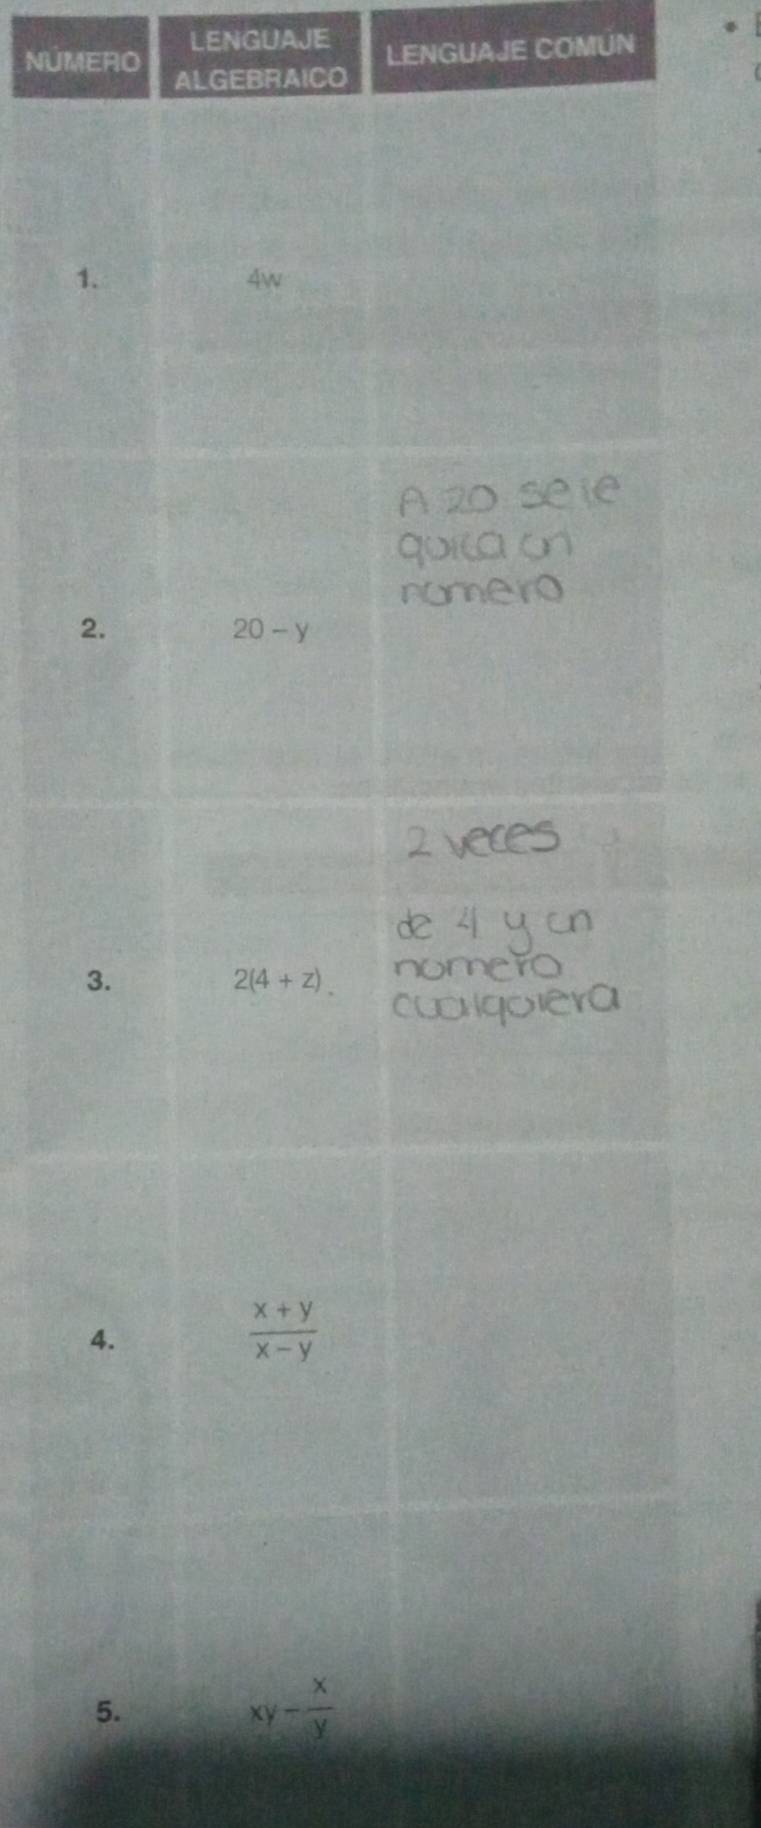 NÚMERO
LENGUAJE
ALGEBRAICO
LENGUAJE COMÚN
1.
4w
A 20 se le
quita un
numero
2.
20 − y
2 veces
de 4 y un
numero
cualquiera
3.
2(4 + z)
4.
x + y
x − y
5.
xy − x
y